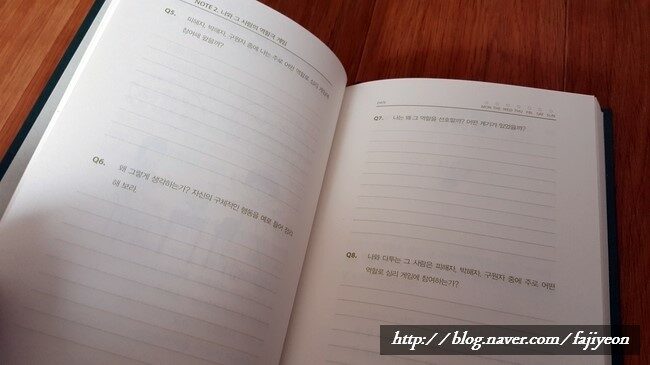 NOTE 2. 나와 그 사람의 역할극 게임
Q5. 피해자, 박해자, 구원자 중에 나는 주로 어떤 역할로 심리 게임에
참여해 왔을까?
Q6. 왜 그렇게 생각하는가? 자신의 구체적인 행동을 예로 들어 정리
해 보라.
Date
MON TUE WED THU FRI SAT SUN
Q7. 나는 왜 그 역할을 선호할까? 어떤 계기가 있었을까?
Q8. 나와 다투는 그 사람은 피해자, 박해자, 구원자 중에 주로 어떤
역할로 심리 게임에 참여하는가?
http://blog.naver.com/fajiyeon